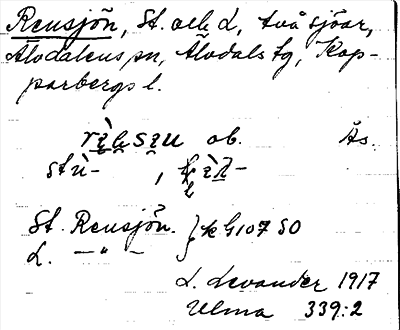 Rensjön, St. och L, två sjöar,
Älvdalens sn, Älvdals tg, Kop-
parbergs l.
ob. Ås.
St. Rensjön. } k G107 SO
L. — " —
L. Levander 1917
Ulma 339:2